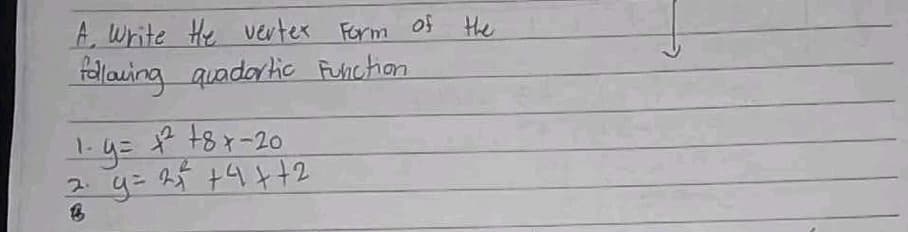 A. Write the vertex Form of the
following quadortic Function
1. y = x² +8x-20
2. y = 2x² +4x+2